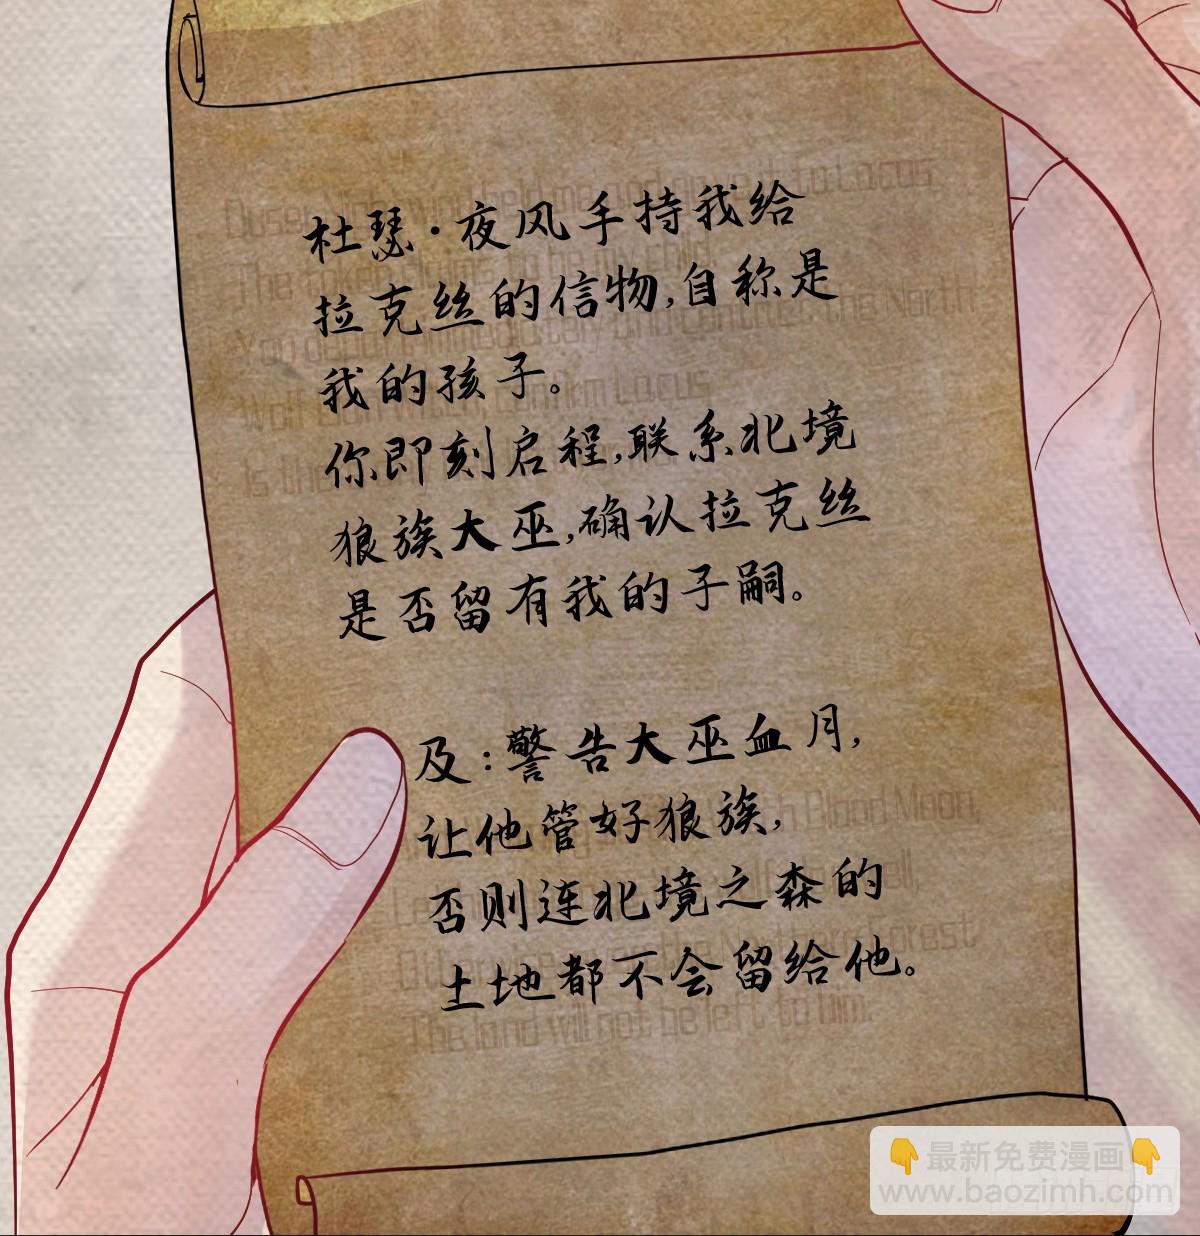 杜瑟·夜风手持我给
拉克丝的信物,自称是
我的孩子。
你即刻启程,联系北境
狼族大巫,确认拉克丝
是否留有我的子嗣。
及:警告大巫血月,
让他管好狼族,
否则连北境之森的
土地都不会留给他。
The land will not be left to him.
👇最新免费漫画👇
www.baozimh.com